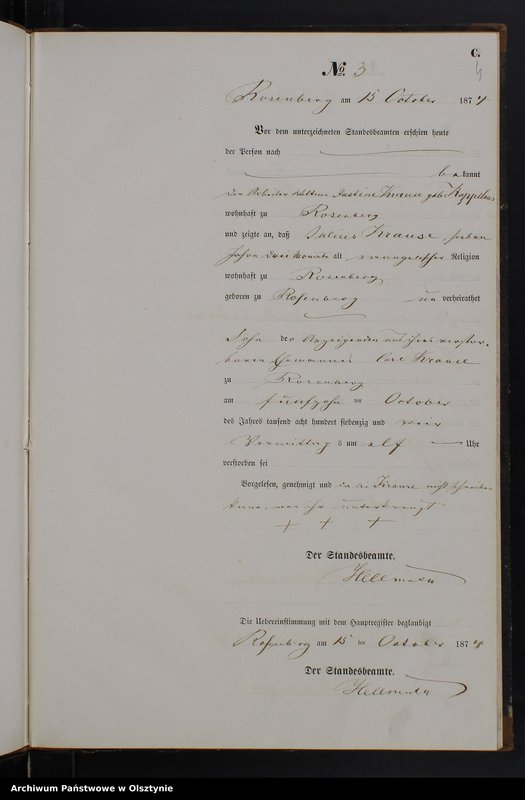 C.
№ 3
Rosenberg am 15 October 1874
Vor dem unterzeichneten Standesbeamten erschien heute
der Person nach
be kannt
die Arbeiter Wittwe Justine Krause geb.
wohnhaft zu Rosenberg
und zeigte an, daß Julius Krause, sieben
Jahre drei Monate alt evangelischer Religion
wohnhaft zu Rosenberg
geboren zu Rosenberg un verheirathet
Sohn der Anzeigenden und ihres verstor-
benen Ehemannes Carl Krause
zu Rosenberg
am fünfzehn ten October
des Jahres tausend acht hundert siebenzig und vier
Vormittag s um elf Uhr
verstorben sei
Vorgelesen, genehmigt und da die Krause nicht schreiben
kann, von ihr unterkreuzt
+ + +
Der Standesbeamte.
Die Uebereinstimmung mit dem Hauptregister beglaubigt
Rosenberg am 15 ten October 1874
Der Standesbeamte.
Archiwum Państwowe w Olsztynie